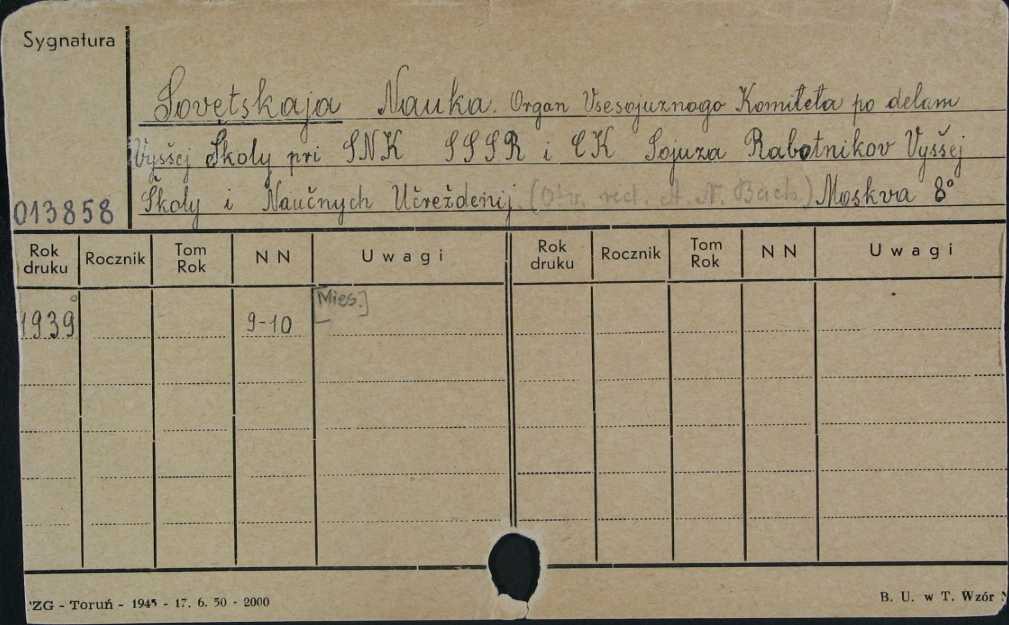 Sygnatura
Sovetskaja Nauka. Organ Vsesojuznago Komiteta po delam
Vysšej Školy pri SNK SSSR i CK Sojuza Rabotnikov Vyššej
Školy i Naučnych Učreždenij. (Otv. red. A. N. Bach.) Moskva 8°
013858
Rok druku Rocznik Tom Rok NN Uwagi Rok druku Rocznik Tom Rok NN Uwagi
[Mies.]
1939 9-10
ZG - Toruń - 1945 - 17. 6. 50 - 2000
B. U. w T. Wzór